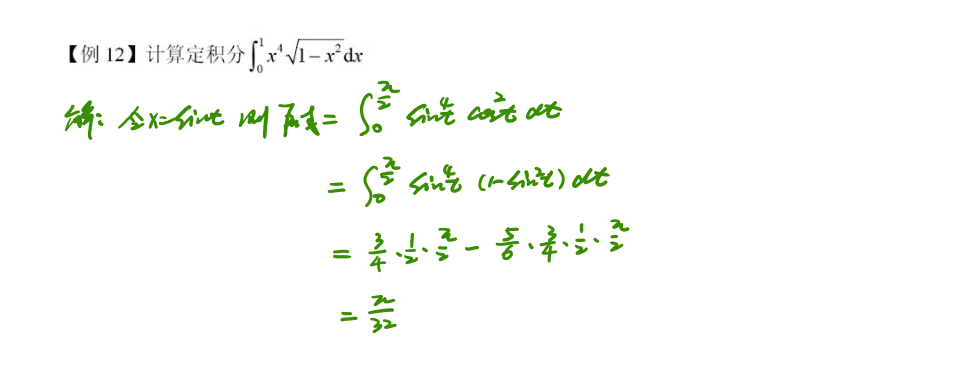 【例 12】计算定积分∫₀¹ x⁴√(1−x²)dx
解: 令x=sint 则 原式= ∫₀^(π/2) sin⁴t cos²t dt
= ∫₀^(π/2) sin⁴t (1-sin²t) dt
= 3/4 · 1/2 · π/2 − 5/6 · 3/4 · 1/2 · π/2
= π/32